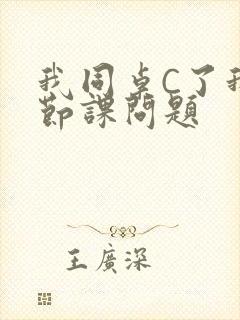 我同桌C了我
節課問題
王廣深